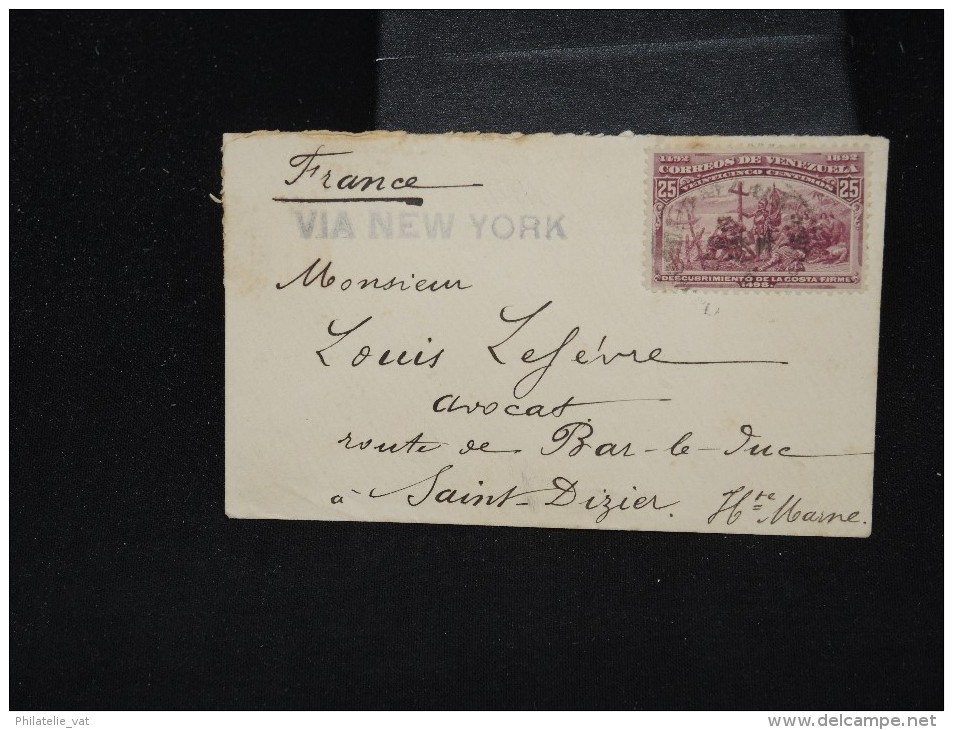 France
VIA NEW YORK
1492 1892
CORREOS DE VENEZUELA
VEINTICINCO CENTIMOS
25 25
DESCUBRIMIENTO DE LA COSTA FIRME
1498.
Monsieur
Louis Lefévre
avocat
route de Bar-le-Duc
à Saint-Dizier. Hte Marne.
Philatelie_vat
www.delcampe.net